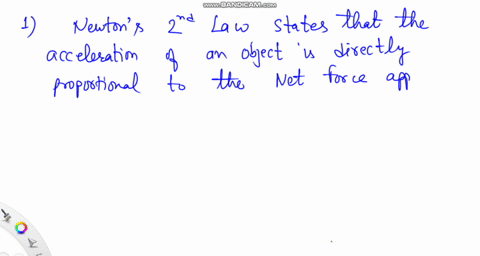 www.BANDICAM.com
1) Newton's 2nd Law states that the
acceleration of an object is directly
proportional to the Net force app